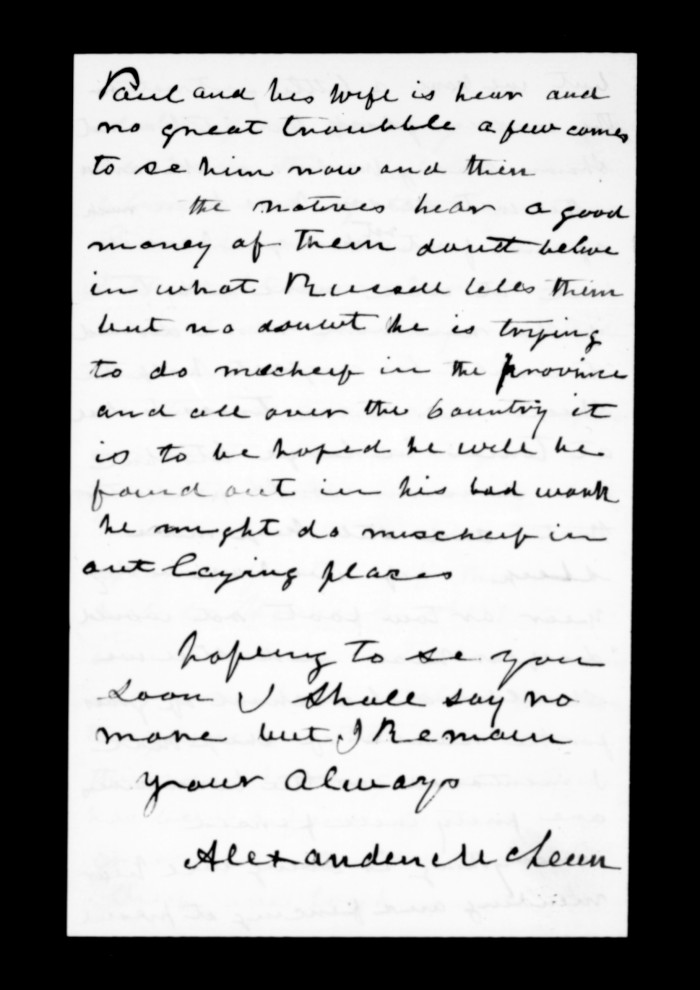 Paul and his wife is hear and
no great troubble a few comes
to se him now and then
the natives hear a good
money of them doutt belive
in what Russell tels them
but no douwt he is trying
to do mischeif in the province
and all over the country it
is to be hoped he will be
found out in his bad work
he might do mischeif in
out laying places
hopeing to se you
soon I Shall say no
more but I Remain
your Always
Alexander McLean